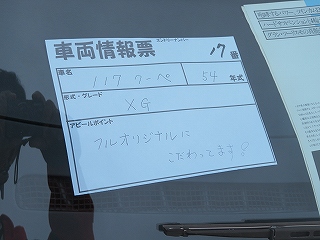 エントリーナンバー
車両情報票 17番
車名 117クーペ 54年式
形式・グレード
XG
アピールポイント
フルオリジナルに
こだわってます!